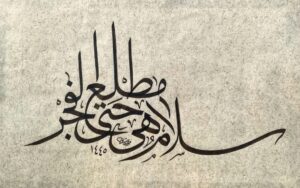 سلام هي حتى مطلع الفجر
١٤٤٥